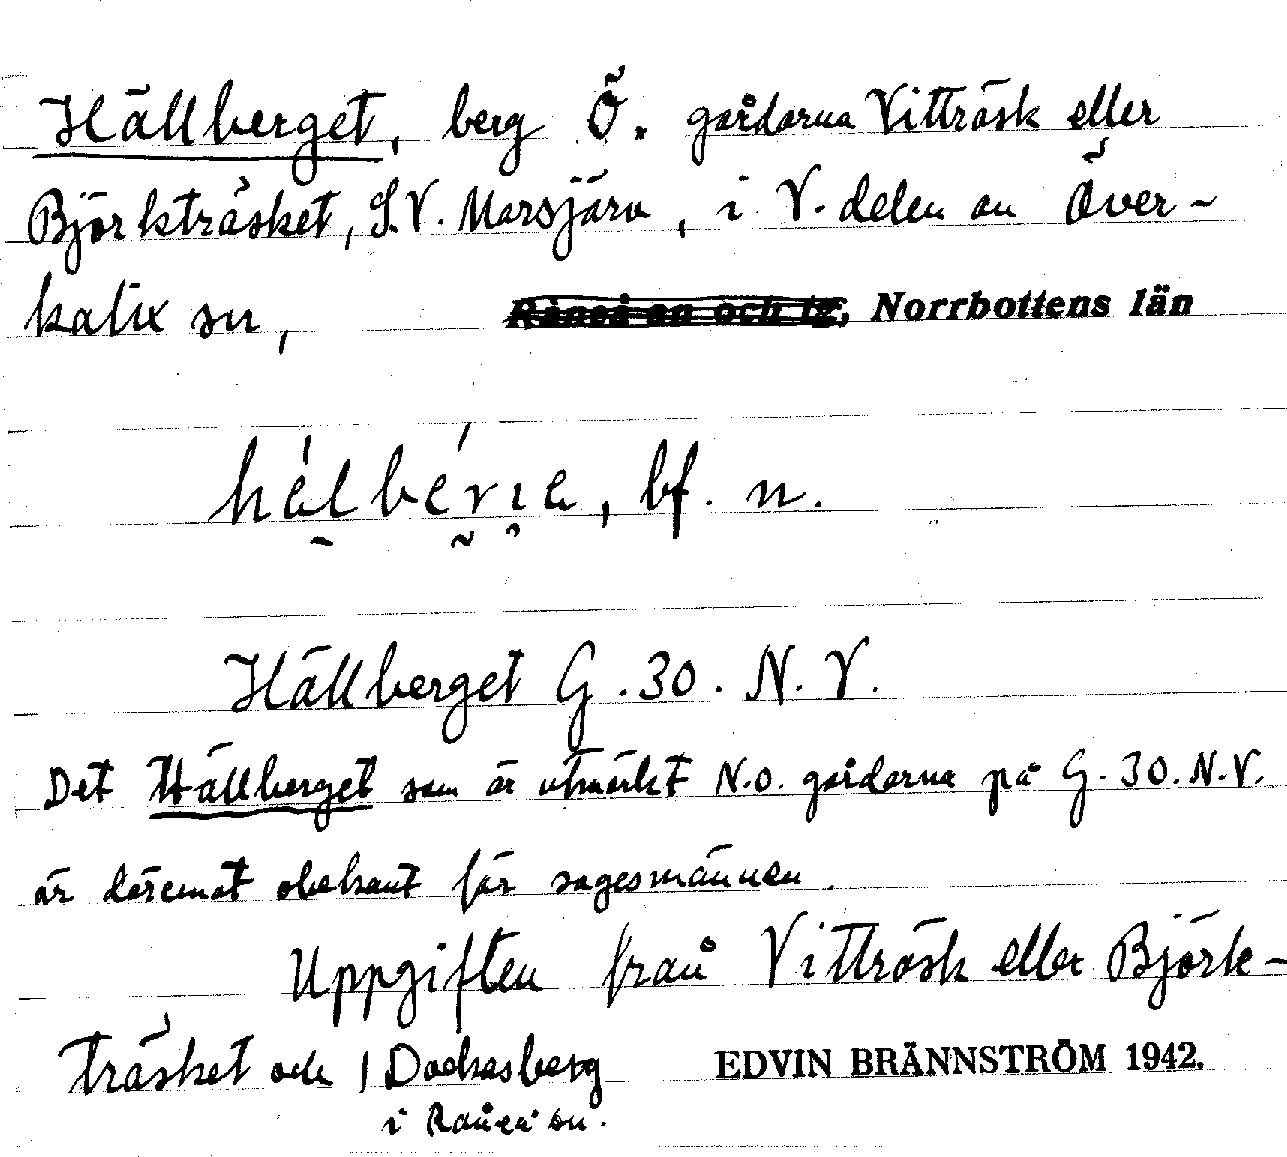 Hällberget, berg Ö. gårdarna Vitträsk eller
Björkträsket, S.V. Marsjärv, i V. delen av Över-
kalix sn, Råneå sn och tg, Norrbottens län
bf. n.
Hällberget G. 30. N. V.
Det Hällberget som är utmärkt N.O. gårdarna på G. 30. N.V.
är däremot obekant för sagesmännen.
Uppgiften från Vitträsk eller Björk-
träsket och Dockasberg EDVIN BRÄNNSTRÖM 1942.
i Råneå sn.